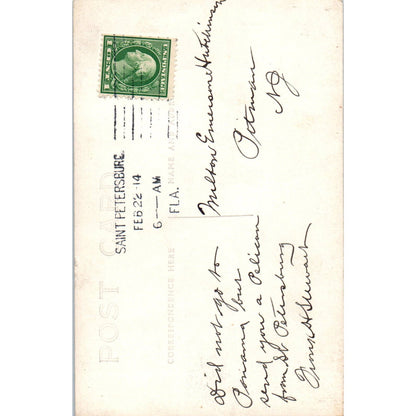 U.S. POSTAGE
SAINT PETERSBURG,
FEB 22-14
6—AM
FLA.
Milton Emerson Hutchinson
Pitman
NJ
POST CARD
CORRESPONDENCE HERE
NAME AND
Did not go to
Panama but
send you a Pelican
from St Petersburg
H Stewart